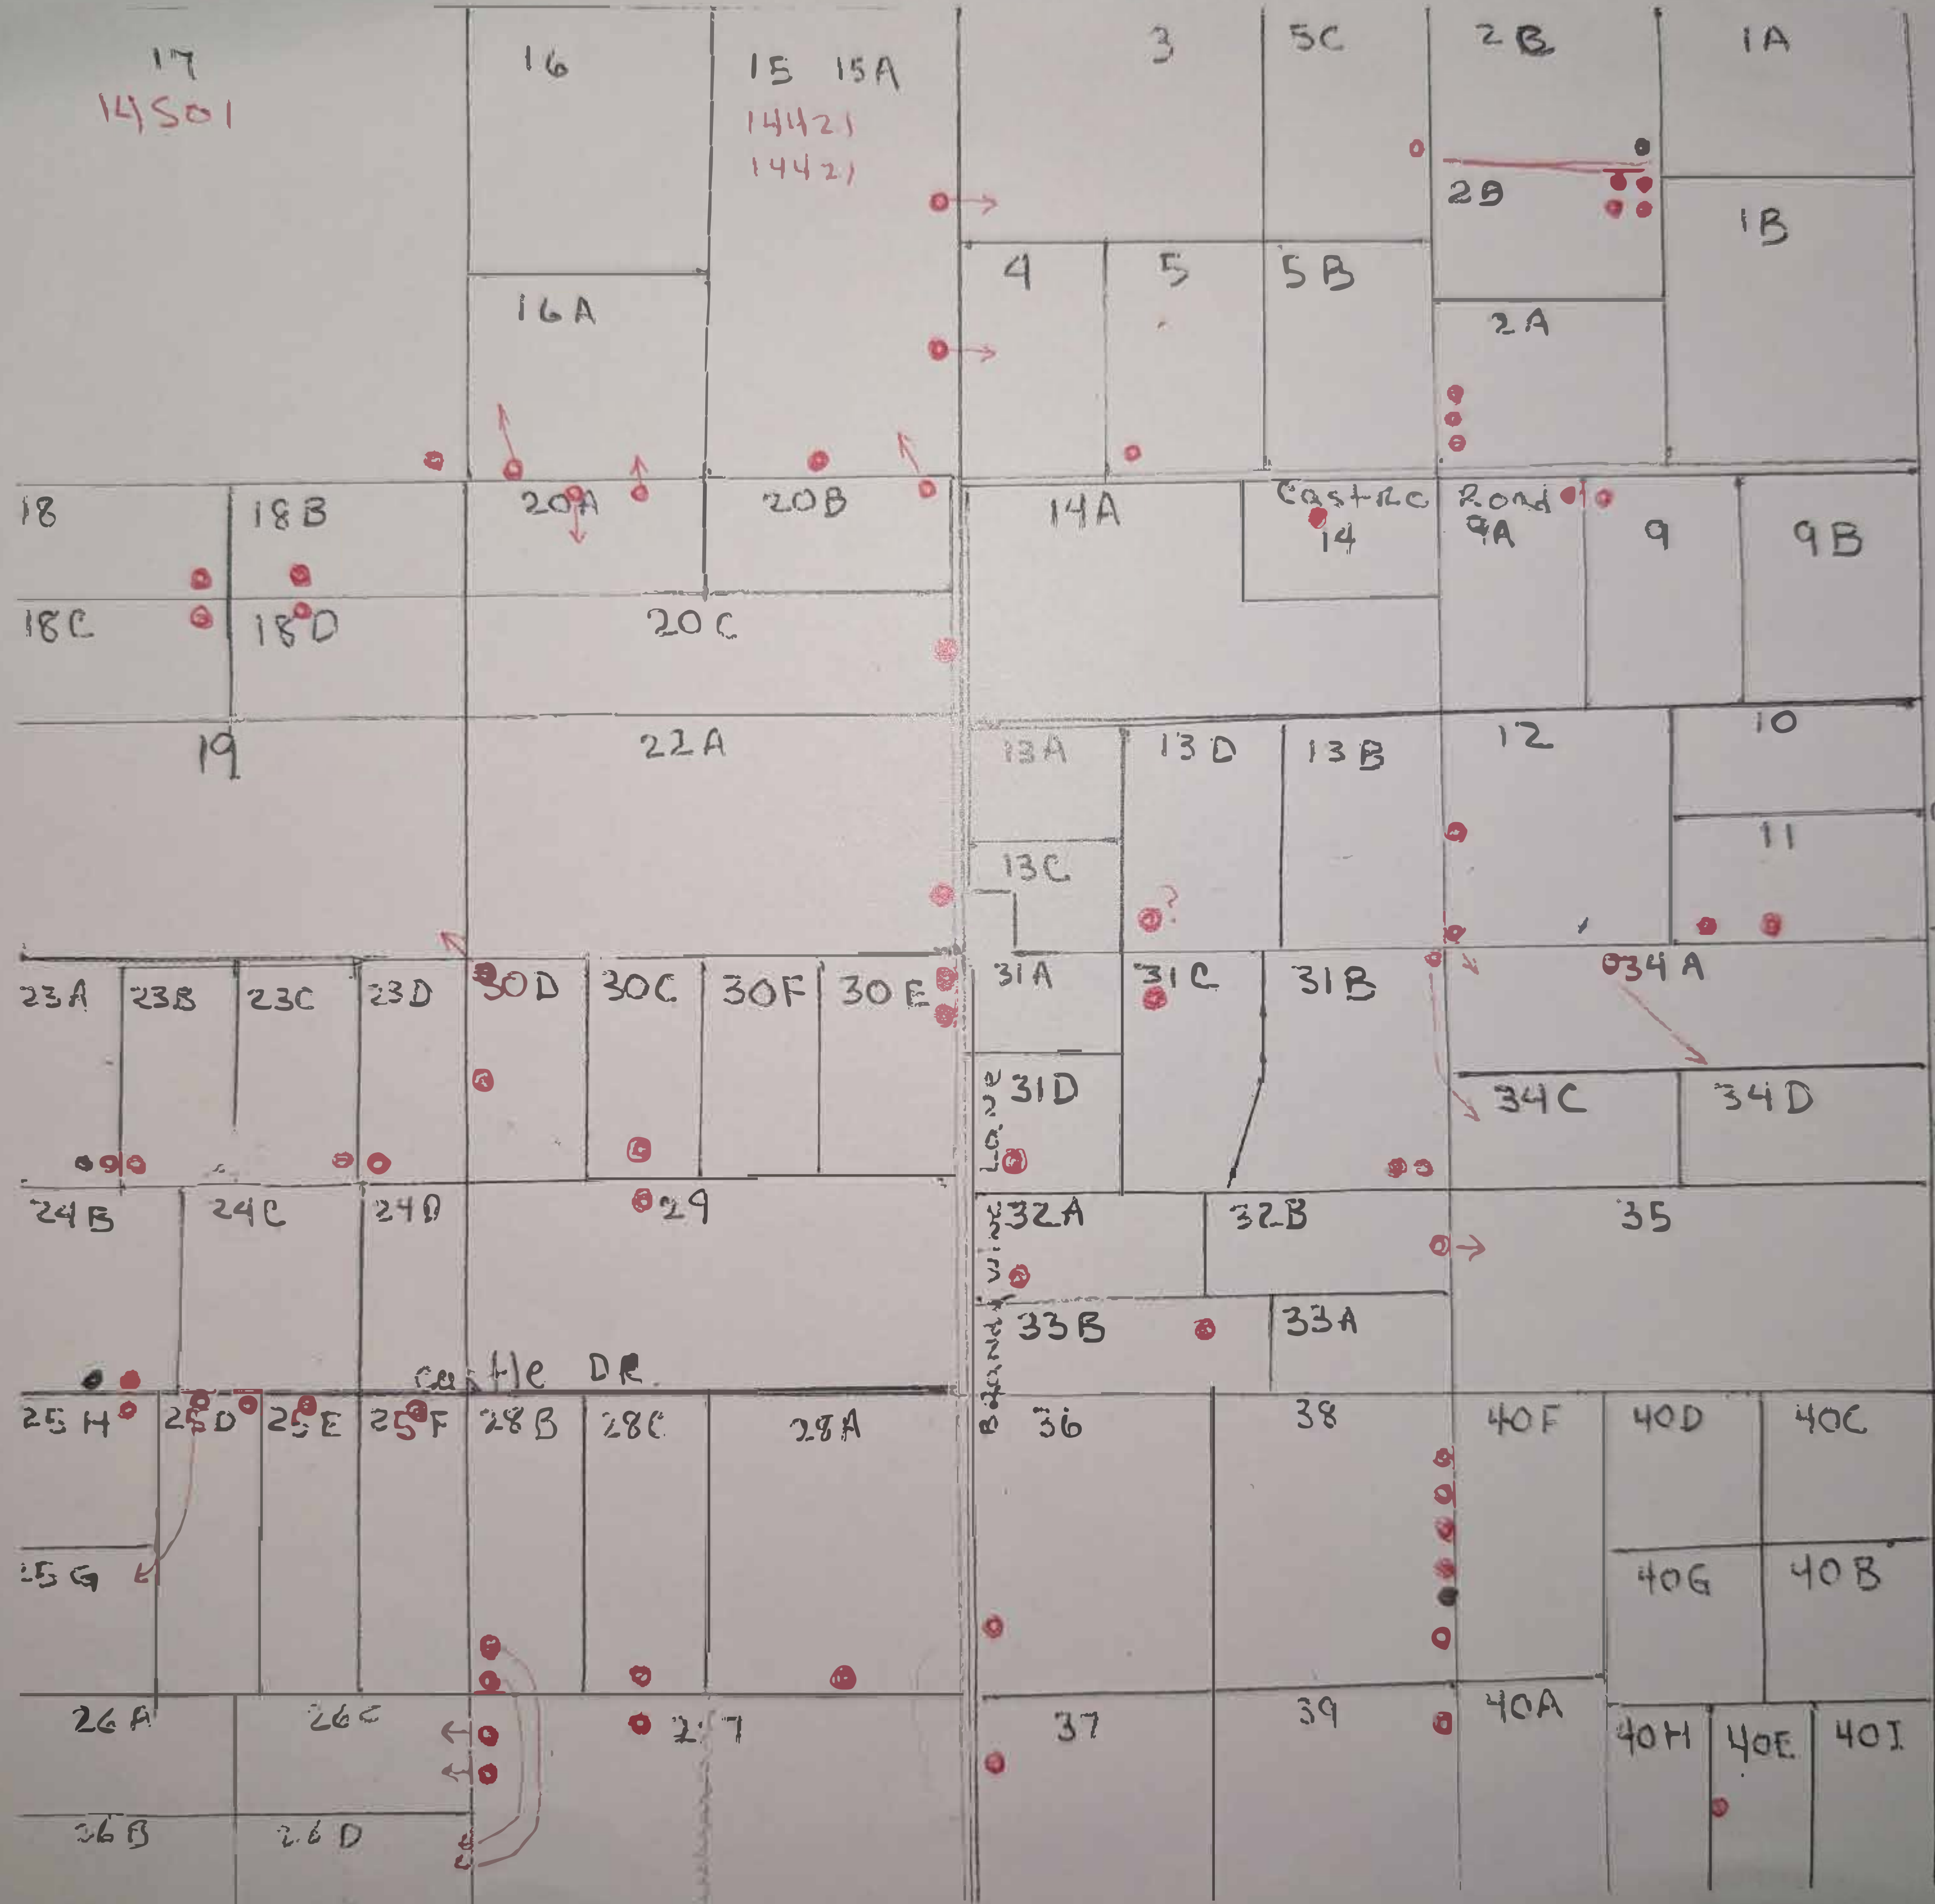 17 16 15 15A 3 5C 2B 1A
14501 14421
14421
2B 1B
16A 4 5 5B 2A
18 18B 20A 20B 14A Castro Road
14 9A 9 9B
18C 18D 20C
19 22A 13A 13D 13B 12 10
13C 11
?
23A 23B 23C 23D 30D 30C 30F 30E 31A 31C 31B 34A
31D 34C 34D
24B 24C 24D 29 32A 32B 35
33B 33A
Castle DR.
Lane
25H 25D 25E 25F 28B 28C 28A 36 38 40F 40D 40C
25G 40G 40B
26A 26C 27 37 39 40A 40H 40E 40I
26B 26D